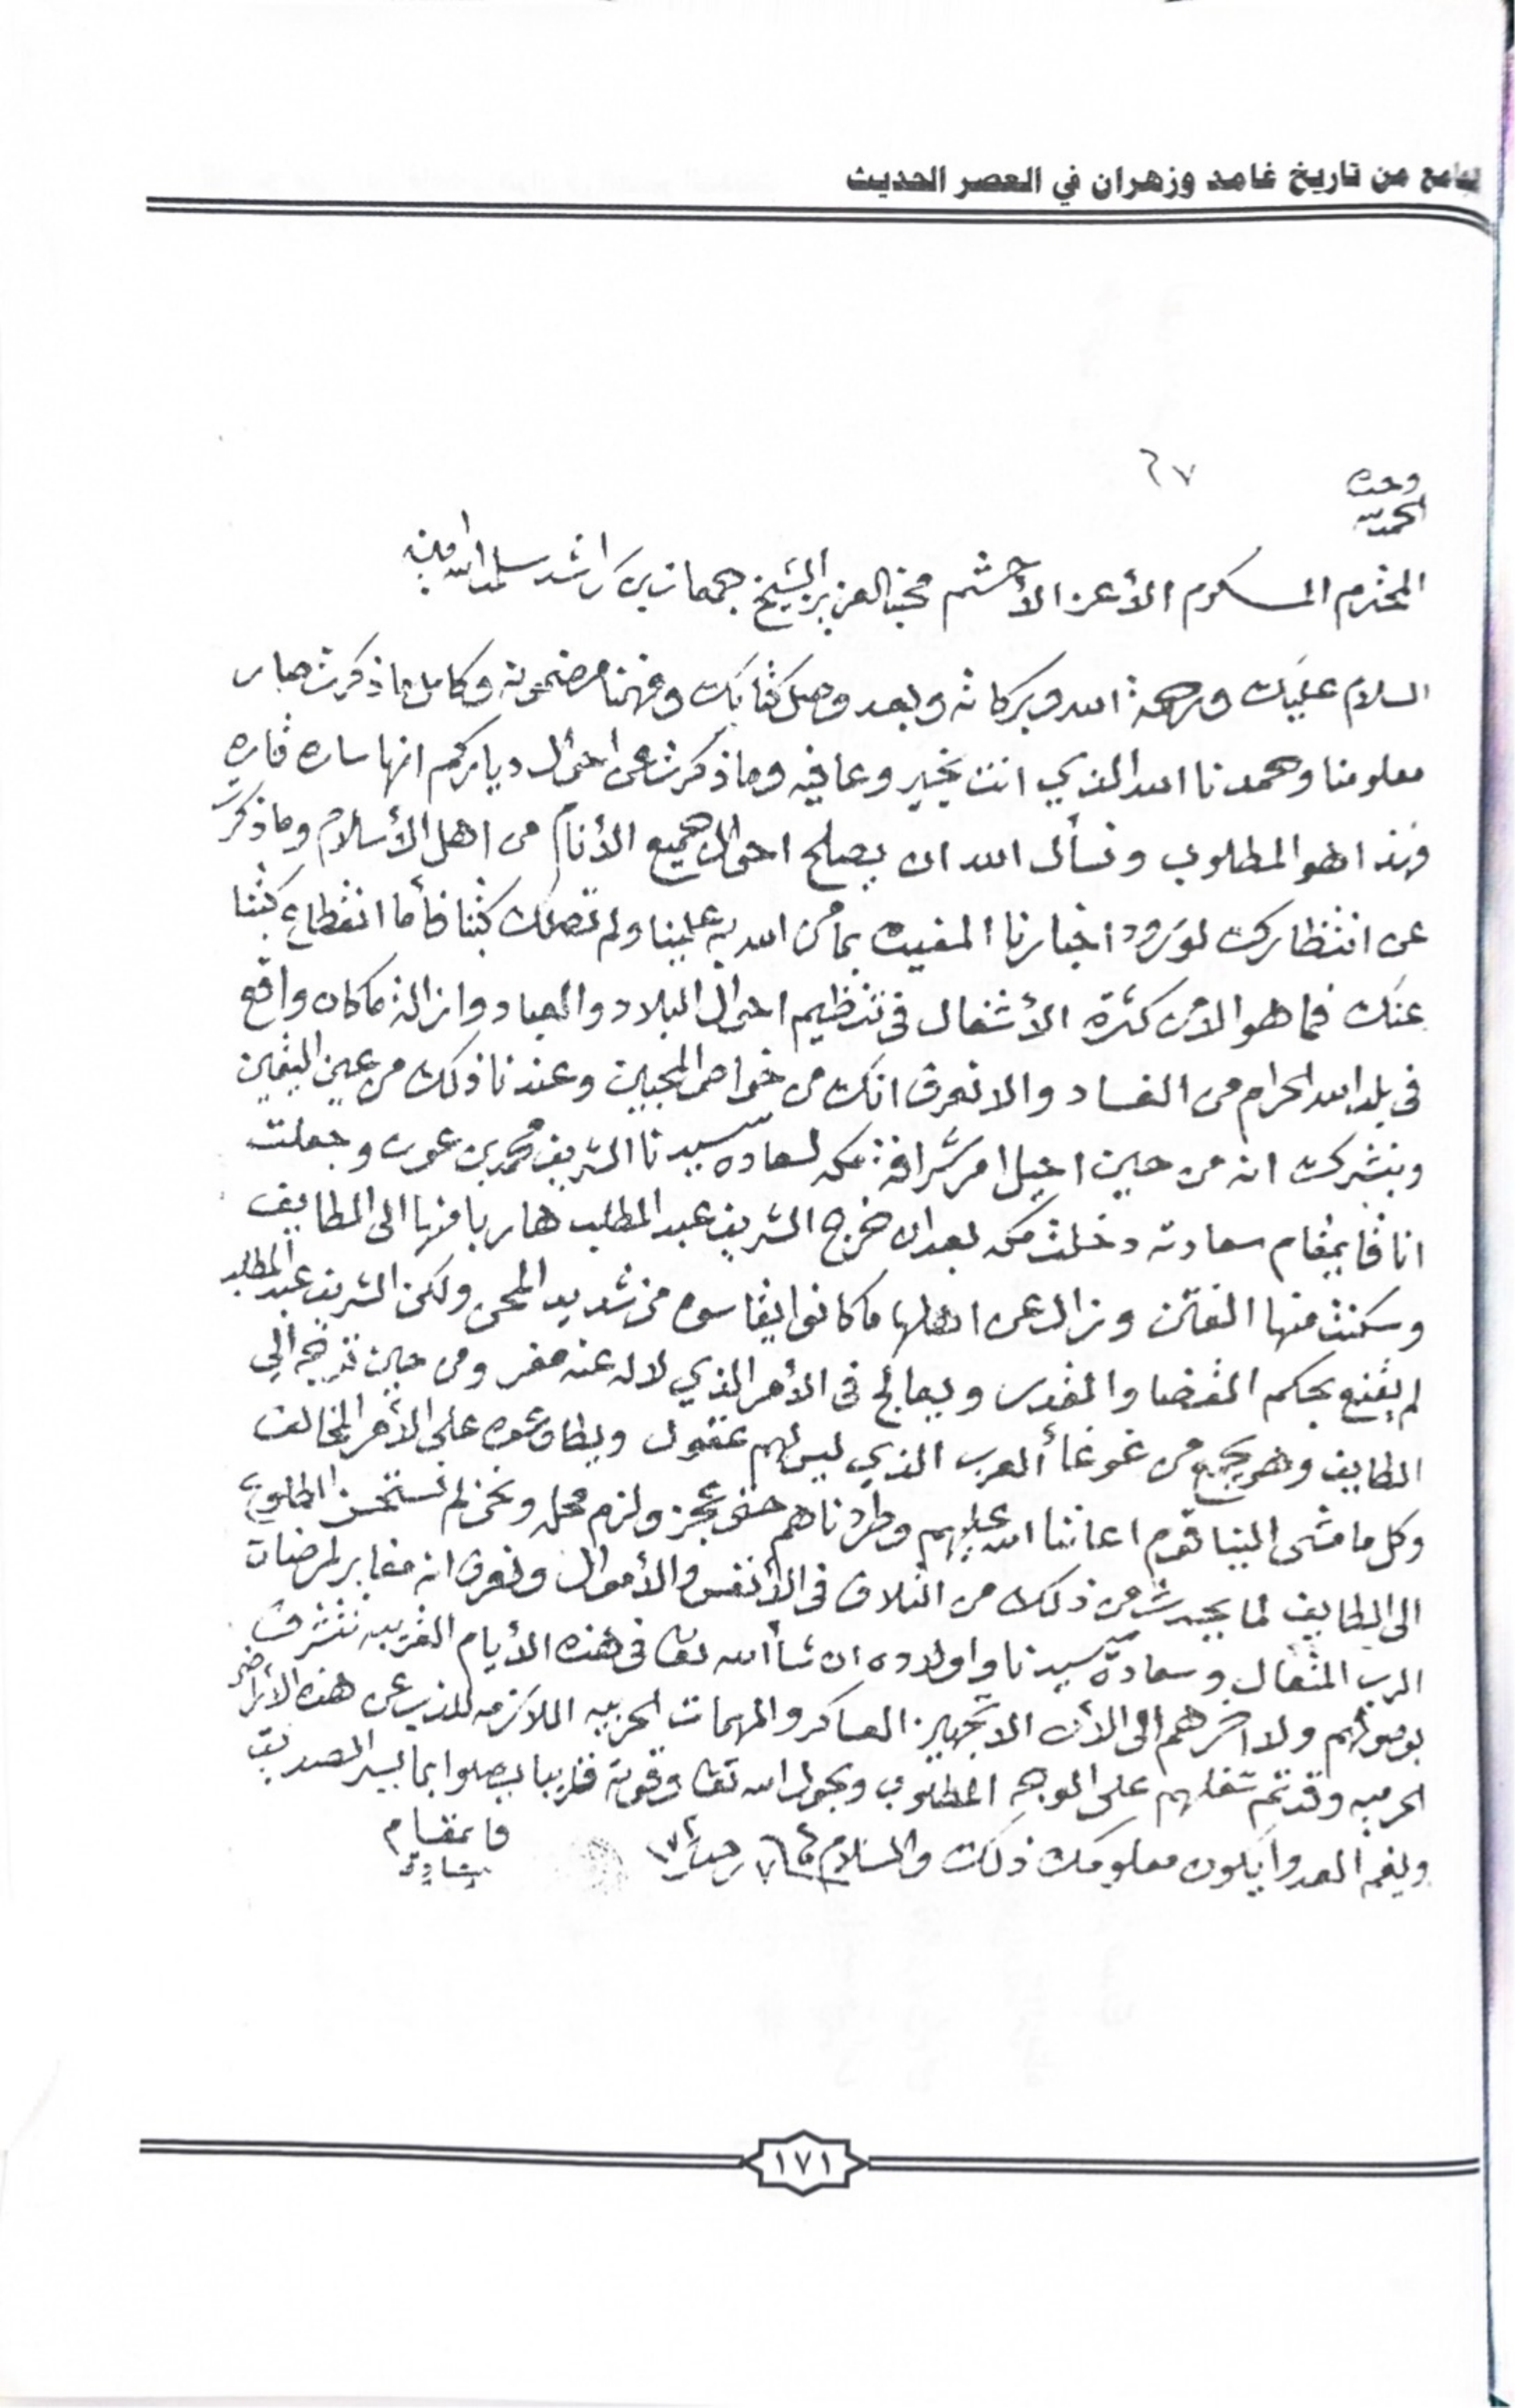 من تاريخ غامد وزهران في العصر الحديث
٦٧
الحمد لله وحده
المحترم المكرم الأعز الأحشم محبنا العزيز الشيخ جمعان بن راشد سلمه الله امين
السلام عليك ورحمة الله وبركاته وبعد وصل كتابك وفهمنا مضمونه وكامل ما ذكرت صار
معلومنا وحمدنا الله الذي انت بخير وعافيه وما ذكرت عن احوال دياركم انها ساره قاره
فهذا هو المطلوب ونسأل الله ان يصلح احوال جميع الأنام من اهل الأسلام وما ذكرت
عن انتظارك لورود اخبارنا المفيده بما من الله به علينا ولم تصلك كتبنا فأما انقطاع كتبنا
عنك فما هو الا من كثرة الأشغال في تنظيم احوال البلاد والعباد وازالة ما كان واقع
في بلد الله الحرام من الفساد والا نعرف انك من خواص المحبين وعندنا ذلك من عين اليقين
ونبشرك انه من حين احيل امر شرافة مكه لسعادة سيدنا الشريف محمد بن عون وجعلت
انا قايمقام سعادته دخلت مكه بعد ان خرج الشريف عبد المطلب هاربا منها الى الطايف
وسكنت منها الفتن وزال عن اهلها ما كانوا يقاسون من شديد المحن ولكن الشريف عبد المطلب
لم يقنع بحكم القضا والقدر ويعالج في الأمر الذي لا له عنه مفر ومن حين توجه الي
الطايف وهو يجمع من غوغأ العرب الذي ليس لهم عقول ويطاوعوه على الأمر المخالف
وكل ما مشى الينا قوم اعاننا الله عليهم وطردناهم حتى عجز ولزم محله ونحن لم نستحسن الطلوع
الى الطايف لما يحدث من ذلك من التلاف في الأنفس والأموال ونعرف انه مغاير لمرضات
الرب المتعال وسعادة سيدنا واولاده ان شأ الله تعا في هذه الأيام القريبه نتشرف
بوصولهم ولا اخرهم الى الأن الا تجهيز العساكر والمهمات الحربيه اللازمه للذب عن هذه الأراضي
الحرميه وقد تم شغلهم على الوجه المطلوب وبحول الله تعا وقوته قريبا يصلوا بما يسر الصديق
ويغم العدو ايكون معلومك ذلك والسلام
قايمقام
سعادة
١٧١